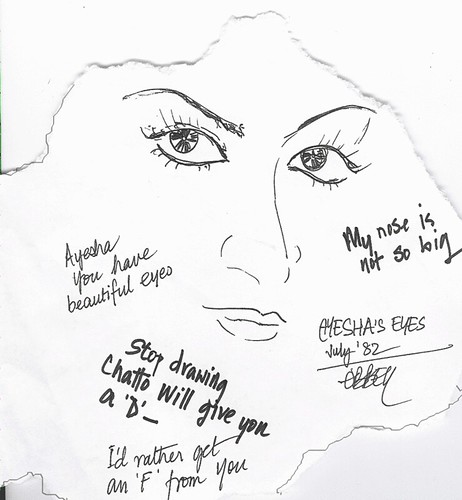 My nose is
not so big
Ayesha
you have
beautiful eyes
AYESHA'S EYES
July '82
Stop drawing
Chatto will give you
a 'D'_
I'd rather get
an 'F' from you